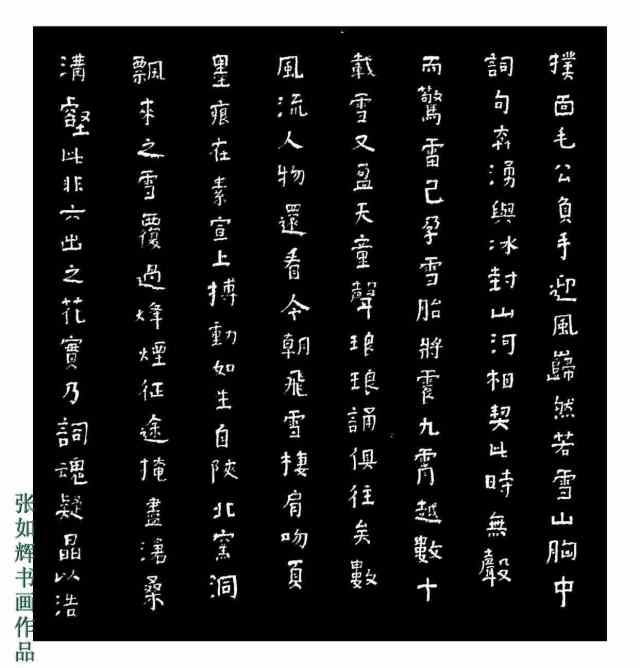 撲面毛公負手迎風巋然若雪山胸中
詞句奔湧與冰封山河相契此時無聲
而驚雷已孕雪胎將震九霄越數十
載雪又盈天童聲琅琅誦俱往矣數
風流人物還看今朝飛雪棲肩吻頁
墨痕在素宣上搏動如生自陝北窯洞
飄來之雪覆過烽煙征途掩盡滄桑
溝壑此非六出之花實乃詞魂凝晶以浩
张如辉书画作品